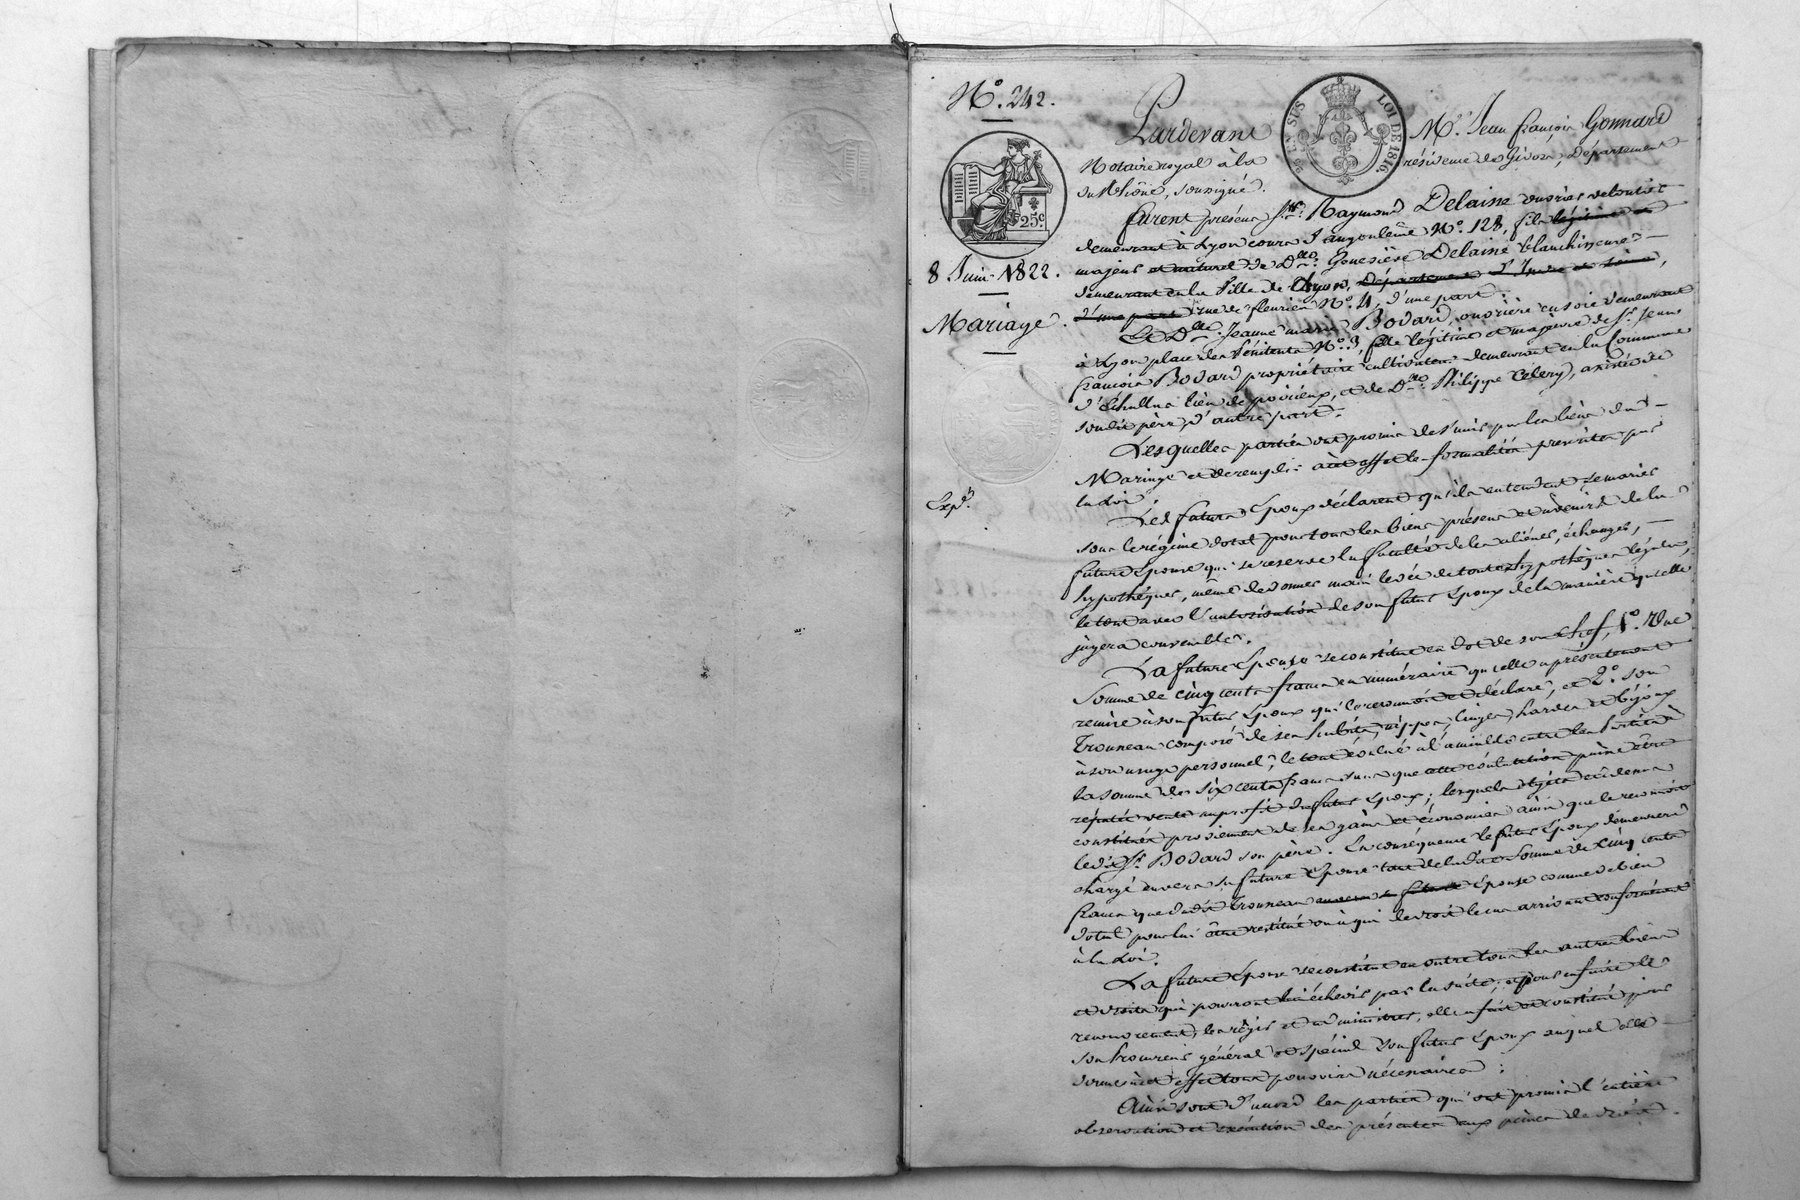 N.° 242.
25.c
8 Juin 1822.
Mariage.
Exp.n
EN SUS
LOI DE 1816
Pardevant M.e Jean françois Gonnard
Notaire royal à la résidence de Givors, Département
du Rhône, soussigné.
furent présens S.r Raymond Delaine ouvrier veloutier
demeurant à Lyon cours d'angoulême N.° 128, fils légitime et
majeur et naturel de D.lle Geneviève Delaine blanchisseuse
demeurant en la Ville de Lyon, Département
d'une part rue de fleurieu N.° 4, d'une part;
Et D.lle Jeanne marie Bodard, ouvrière en soie demeurant
à Lyon place des Pénitents N.° 3, fille légitime et majeure de S.r Jean
françois Bodard propriétaire cultivateur demeurant en la Commune
d'Echallas lieu de, et de D.me Philippe, assistée de
son dit père, d'autre part.
Lesquelles parties ont promis de s'unir par les liens du
Mariage et de remplir à cet effet les formalités prescrites par
la Loi.
Les futurs Epoux déclarent qu'ils entendent se marier
sous le régime dotal pour tous les biens présens et à venir de la
future Epouse qui se reserve la faculté de les aliéner, échanger,
hypothéquer, même de donner main levée de toutes hypothèques légales,
le tout avec l'autorisation de son futur Epoux de la manière qu'elle
jugera convenable.
La future Epouse se constitue en dot de son chef, 1.° Une
Somme de cinq cents francs en numéraire qu'elle a présentement
remise à son futur Epoux qui le reconnoit et déclare, et 2.° Son
Trousseau composé de ses habits, nippes, linges, hardes et bijoux
à son usage personnel, le tout évalué à l'amiable entre les Parties à
la somme de six cents francs sans que cette évaluation puisse être
réputée vente au profit du futur Epoux; lesquels objets ci dessus
constitués proviennent de ses gains et économies ainsi que le reconnoit
le d. S.r Bodard son père. En conséquence le futur Epoux demeurera
chargé envers sa future Epouse tant de ladite Somme de Cinq cents
francs que dudit Trousseau envers la future Epouse comme de bien
dotal pour lui être restitué ou à qui de droit le cas arrivant conformément
à la Loi.
La future Epouse se constitue en outre tous les autres biens
et droits qui pourront lui échevir par la suite, et pour en faire le
recouvrement, les régir et administrer, elle a fait et constitué pour
son Procureur général et spécial son futur Epoux auquel elle
donne à cet effet tous pouvoirs nécessaires;
Ainsi sont d'accord les parties qui ont promis l'entière
observation et exécution des présentes aux peines de droit.